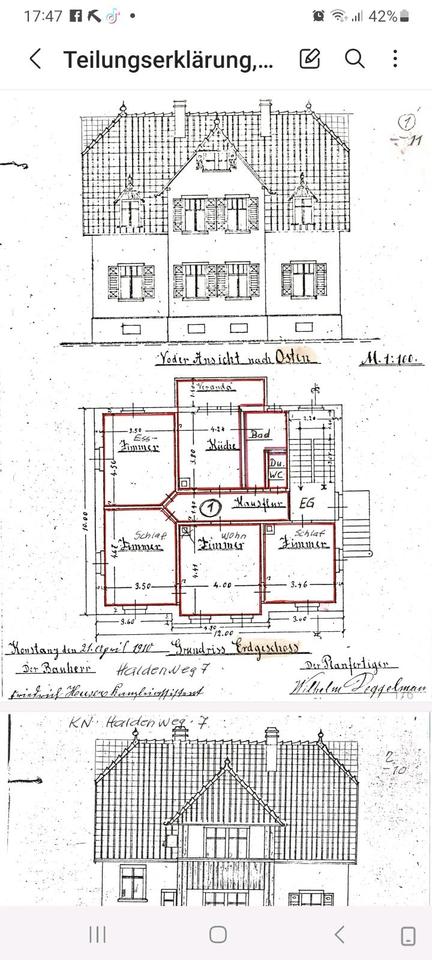 17:47
42%
Teilungserklärung,...
1
11
Voder Ansicht nach Osten M. 1:100.
Veranda
3.50
Ess-
Zimmer
4.24
Küche
Bad
2.20
Du.
WC
3.80
Hausflur
EG
1
10.00
Schlaf
Zimmer
Wohn
Zimmer
Schlaf
Zimmer
3.50
4.00
3.46
3.60
4.50
3.40
12.00
Konstanz den 21. April 1910 Grundriss Erdgeschoss
Der Bauherr Haldenweg 7 Der Planfertiger
Friedrich
Wilhelm
KN. Haldenweg. 7
2
-10